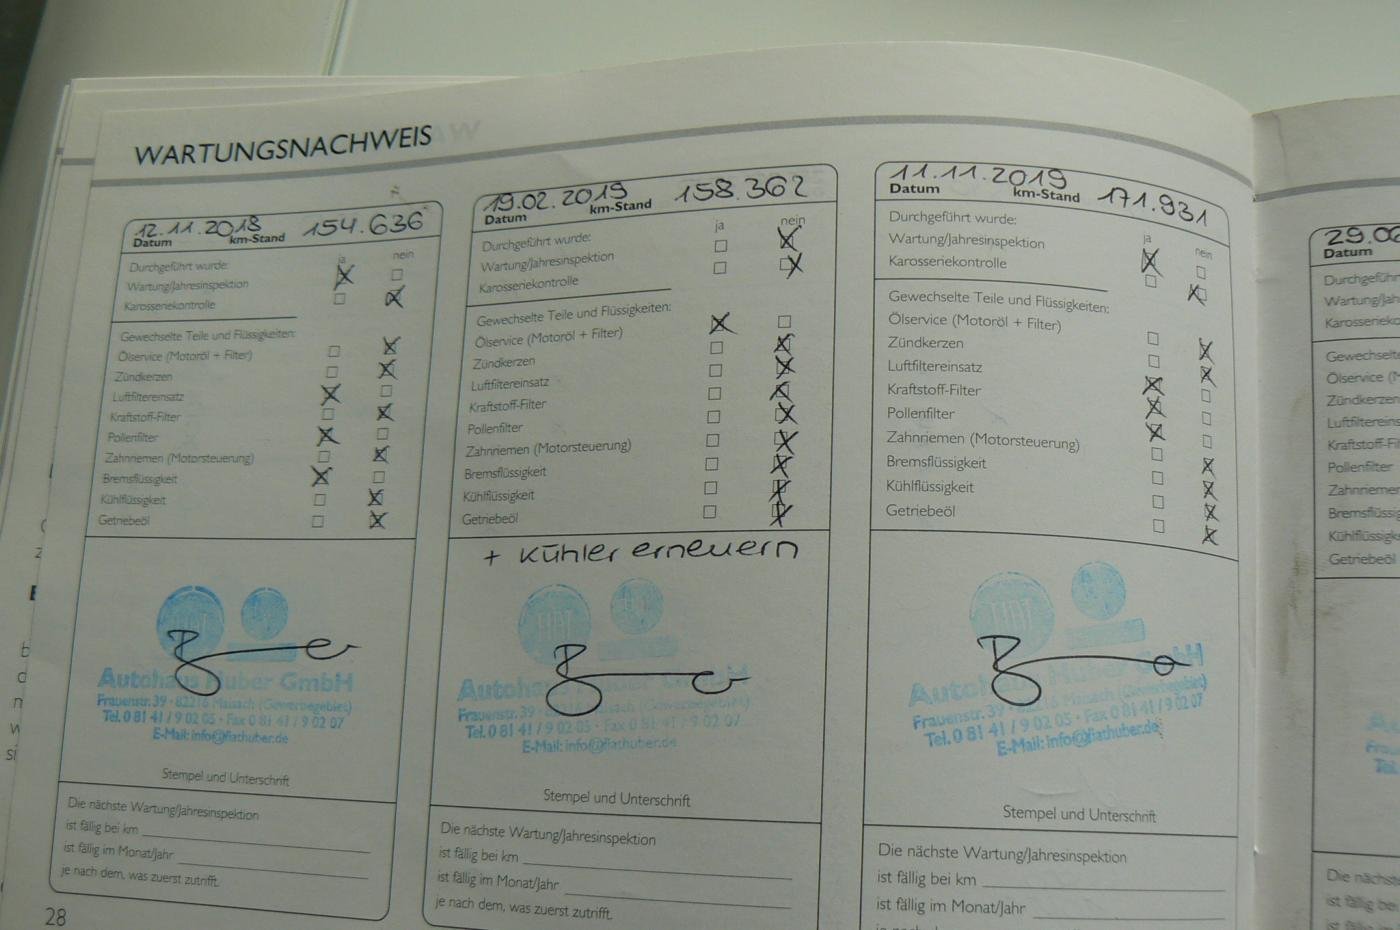 WARTUNGSNACHWEIS
12.11.2018 154.636
Datum km-Stand
Durchgeführt wurde: ja nein
Wartung/Jahresinspektion
Karosseriekontrolle
Gewechselte Teile und Flüssigkeiten:
Ölservice (Motoröl + Filter)
Zündkerzen
Luftfiltereinsatz
Kraftstoff-Filter
Pollenfilter
Zahnriemen (Motorsteuerung)
Bremsflüssigkeit
Kühlflüssigkeit
Getriebeöl
Autohaus Huber GmbH
Frauenstr. 39 · 82216 Maisach (Gewerbegebiet)
Tel. 0 81 41 / 9 02 05 · Fax 0 81 41 / 9 02 07
E-Mail: info@fiathuber.de
Stempel und Unterschrift
Die nächste Wartung/Jahresinspektion
ist fällig bei km
ist fällig im Monat/Jahr
je nach dem, was zuerst zutrifft.
28
19.02.2019 158.362
Datum km-Stand
ja nein
Durchgeführt wurde:
Wartung/Jahresinspektion
Karosseriekontrolle
Gewechselte Teile und Flüssigkeiten:
Ölservice (Motoröl + Filter)
Zündkerzen
Luftfiltereinsatz
Kraftstoff-Filter
Pollenfilter
Zahnriemen (Motorsteuerung)
Bremsflüssigkeit
Kühlflüssigkeit
Getriebeöl
+ Kühler erneuern
Autohaus Huber GmbH
Frauenstr. 39 · 82216 Maisach (Gewerbegebiet)
Tel. 0 81 41 / 9 02 05 · Fax 0 81 41 / 9 02 07
E-Mail: info@fiathuber.de
Stempel und Unterschrift
Die nächste Wartung/Jahresinspektion
ist fällig bei km
ist fällig im Monat/Jahr
je nach dem, was zuerst zutrifft.
11.11.2019 171.931
Datum km-Stand
Durchgeführt wurde:
ja nein
Wartung/Jahresinspektion
Karosseriekontrolle
Gewechselte Teile und Flüssigkeiten:
Ölservice (Motoröl + Filter)
Zündkerzen
Luftfiltereinsatz
Kraftstoff-Filter
Pollenfilter
Zahnriemen (Motorsteuerung)
Bremsflüssigkeit
Kühlflüssigkeit
Getriebeöl
FIAT
Autohaus Huber GmbH
Frauenstr. 39 · 82216 Maisach (Gewerbegebiet)
Tel. 0 81 41 / 9 02 05 · Fax 0 81 41 / 9 02 07
E-Mail: info@fiathuber.de
Stempel und Unterschrift
Die nächste Wartung/Jahresinspektion
ist fällig bei km
ist fällig im Monat/Jahr
29.0
Datum
Durchgefüh
Wartung/Jah
Karosserieko
Gewechselte
Ölservice (M
Zündkerzen
Luftfiltereins
Kraftstoff-Fi
Pollenfilter
Zahnriemen
Bremsflüssig
Kühlflüssigk
Getriebeöl
Die nächste
ist fällig bei